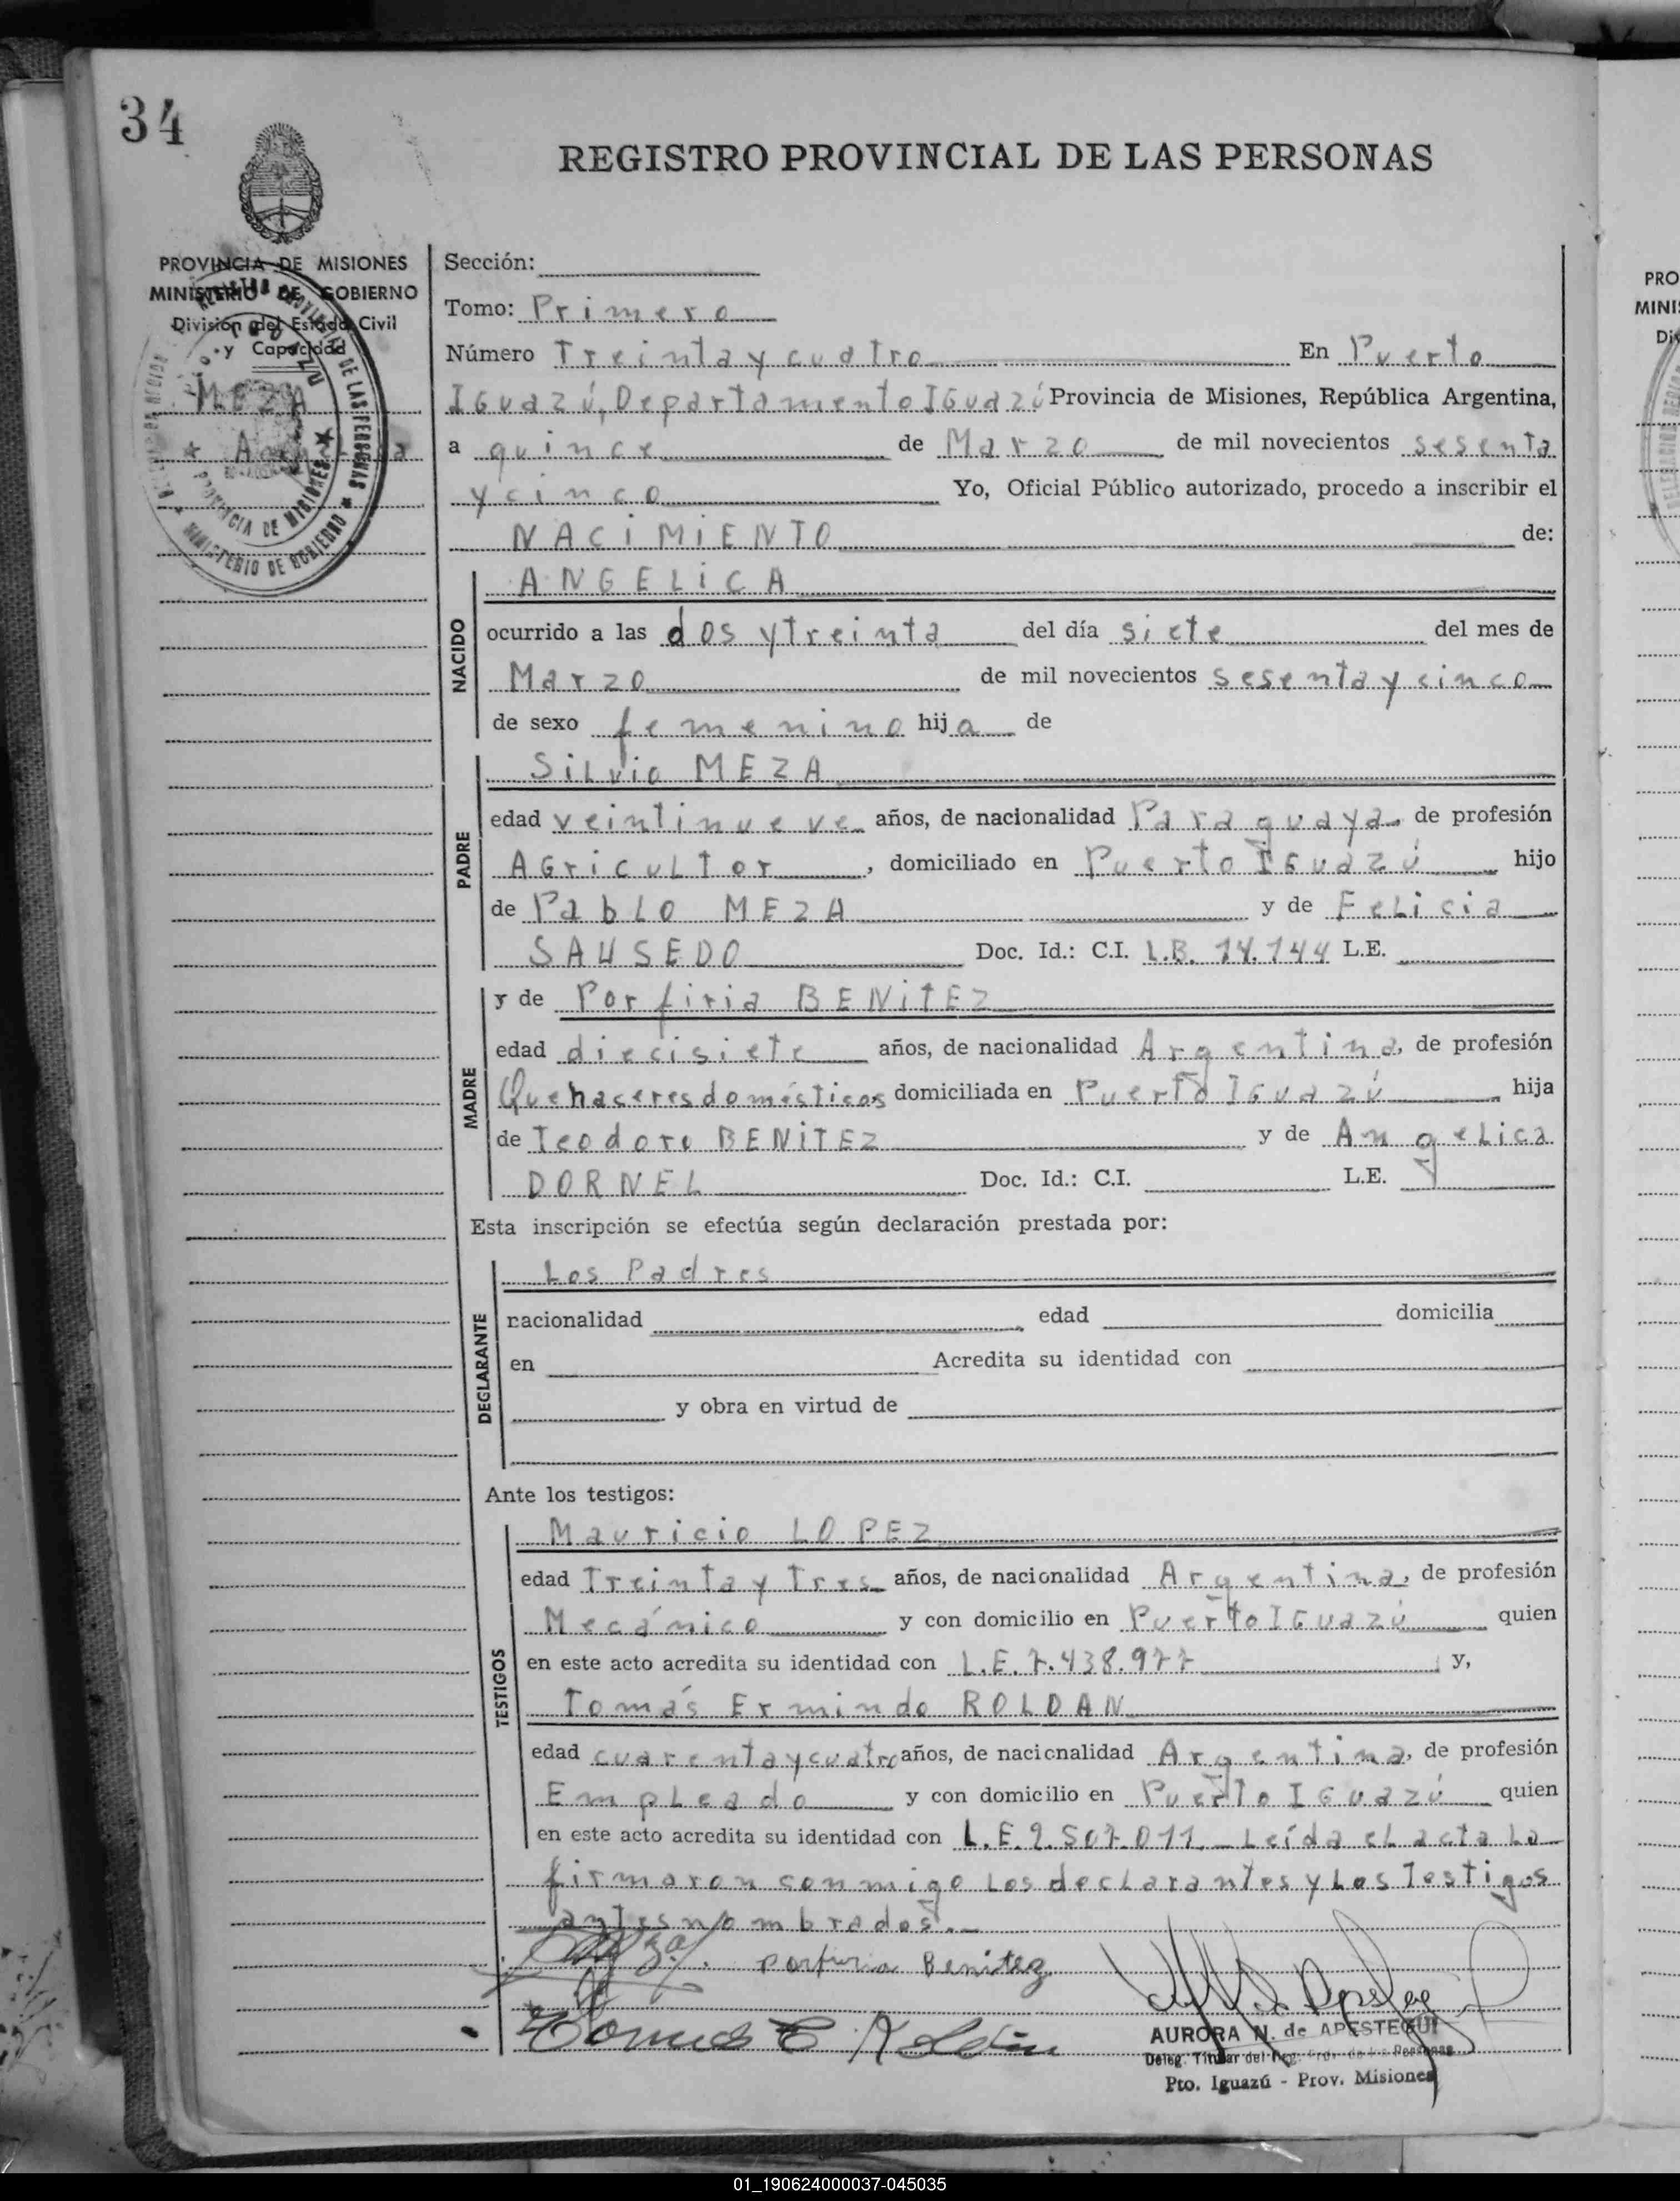 34
REGISTRO PROVINCIAL DE LAS PERSONAS
PROVINCIA DE MISIONES
MINISTERIO DE GOBIERNO
División del Estado Civil
y Capacidad
MEZA
Sección:
Tomo: Primero
Número Treinta y cuatro En Puerto
IGuazú, Departamento IGuazú Provincia de Misiones, República Argentina,
a quince de Marzo de mil novecientos sesenta
y cinco Yo, Oficial Público autorizado, procedo a inscribir el
NACIMIENTO de:
NACIDO
ANGELICA
ocurrido a las dos y treinta del día siete del mes de
Marzo de mil novecientos sesenta y cinco
de sexo femenino hija de
PADRE
Silvio MEZA
edad veintinueve años, de nacionalidad Paraguaya, de profesión
AGricultor, domiciliado en Puerto IGuazú hijo
de Pablo MEZA y de Felicia
SAUSEDO Doc. Id.: C.I. L.B. 14.144 L.E.
MADRE
y de Porfiria BENITEZ
edad diecisiete años, de nacionalidad Argentina, de profesión
Quehaceres domésticos domiciliada en Puerto IGuazú hija
de Teodoro BENITEZ y de Angelica
DORNEL Doc. Id.: C.I. L.E.
Esta inscripción se efectúa según declaración prestada por:
DECLARANTE
Los Padres
nacionalidad edad domicilia
en Acredita su identidad con
y obra en virtud de
Ante los testigos:
TESTIGOS
Mauricio LOPEZ
edad Treinta y Tres años, de nacionalidad Argentina, de profesión
Mecánico y con domicilio en Puerto IGuazú quien
en este acto acredita su identidad con L.E. 7.438.977 y,
Tomás Ermindo ROLDAN
edad cuarenta y cuatro años, de nacionalidad Argentina, de profesión
Empleado y con domicilio en Puerto IGuazú quien
en este acto acredita su identidad con L.E. 2.507.011. Leída el acta la
firmaron conmigo los declarantes y los Testigos
antes nombrados.
porfiria Benitez
Tomas E. Roldán
AURORA N. de APESTEGUI
Deleg. Titular del Reg. Prov. de las Personas
Pto. Iguazú - Prov. Misiones
PRO
MINI
01_190624000037-045035